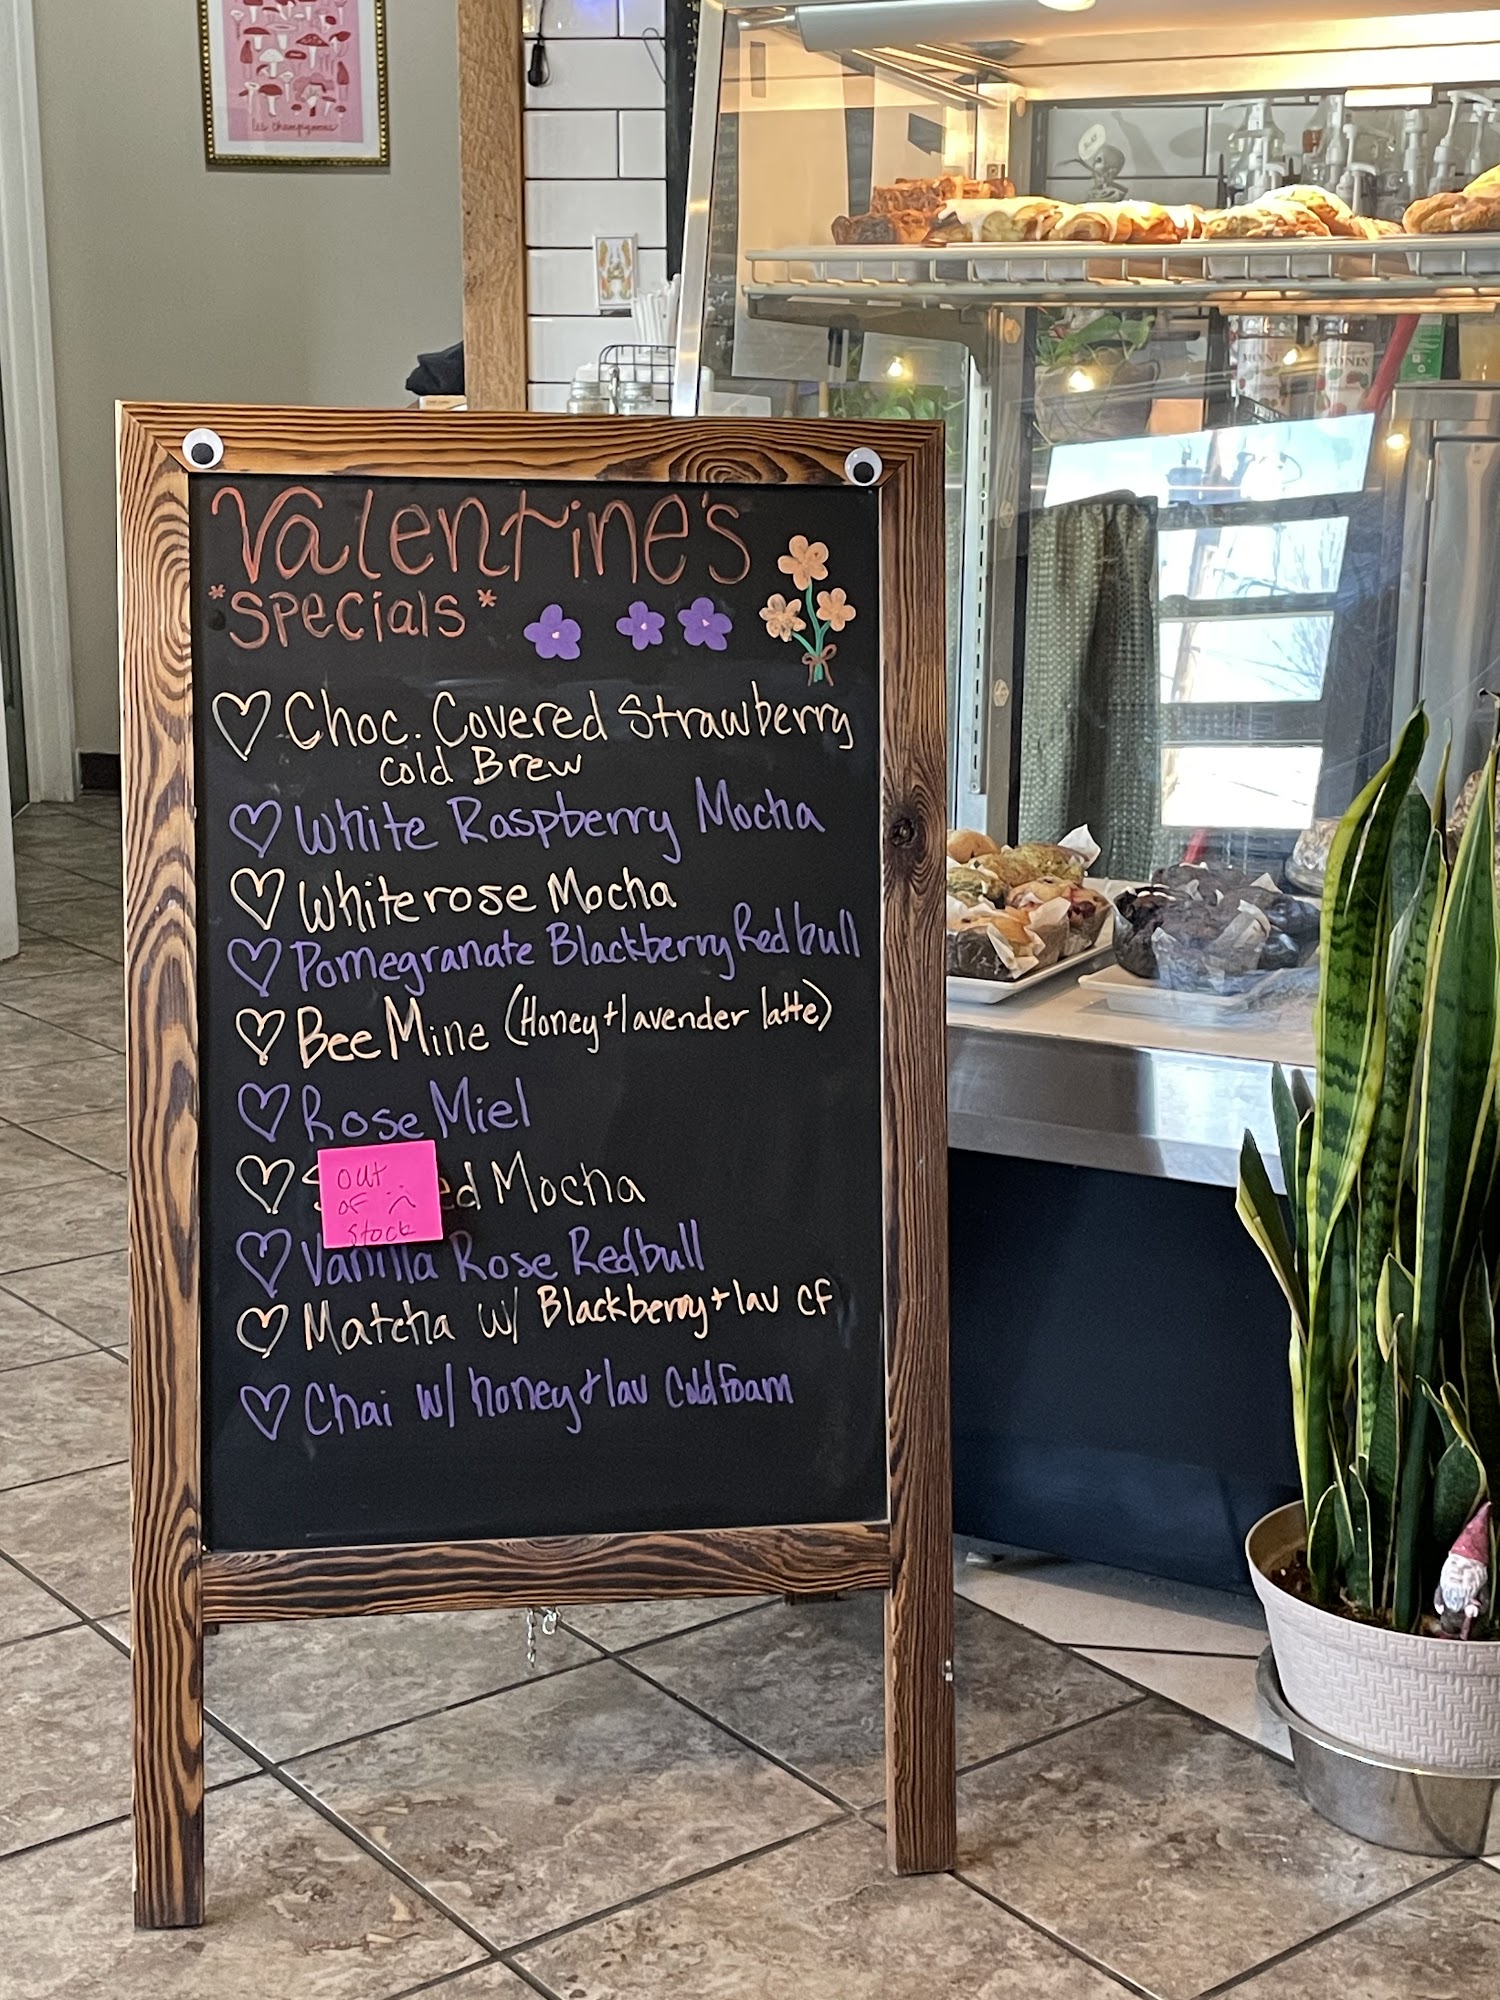 les champignons
Valentine's
*specials*
Choc. Covered Strawberry
Cold Brew
White Raspberry Mocha
Whiterose Mocha
Pomegranate Blackberry Redbull
Bee Mine (Honey+lavender latte)
Rose Miel
Mocha
out
of
stock
Vanilla Rose Redbull
Matcha w/ Blackberry+lav CF
Chai w/ honey+lav Coldfoam
MONIN